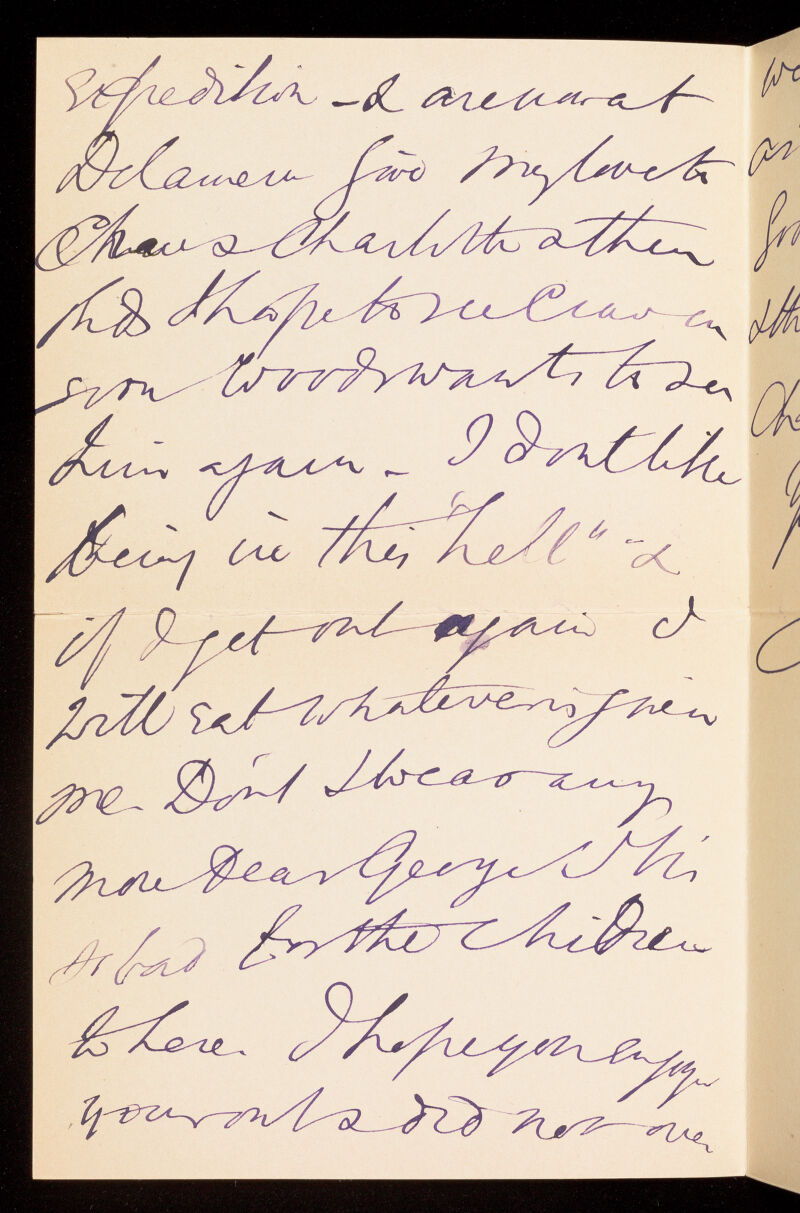 Expedition - & are now at
Delamere Give my love to
Charlotte & them
I hope to see Craven
soon Woods wants to see
him again - I dont like
being in this "hell" - &
if I get out again I
will eat whatever is given
me. Don't swear any
more Dear George it is
so bad for the children
to hear. I hope you enjoy
your out & did not over
we